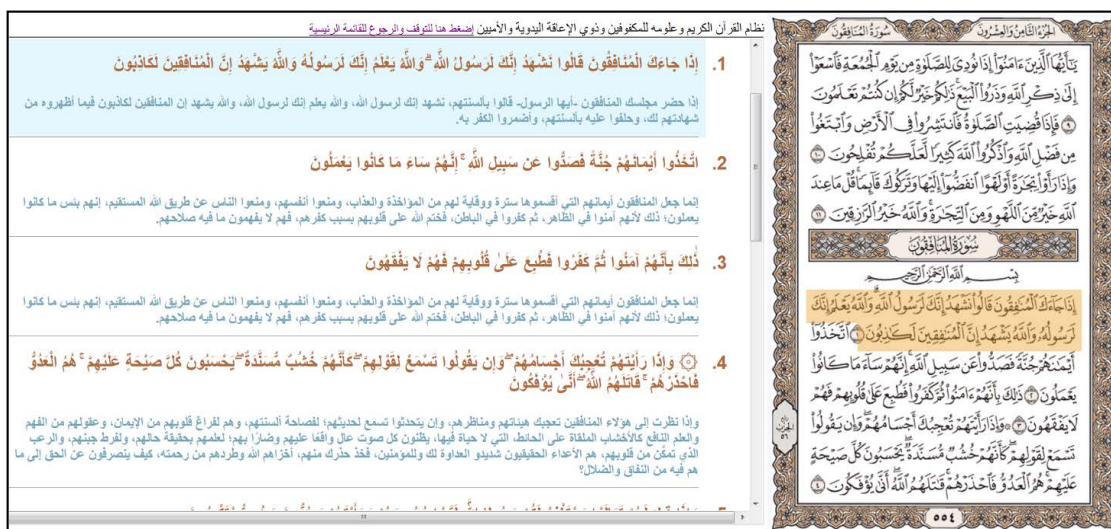 نظام القرآن الكريم وعلومه للمكفوفين وذوي الإعاقة اليدوية والأميين إضغط هنا للتوقف والرجوع للقائمة الرئيسية
1. إِذَا جَاءَكَ الْمُنَافِقُونَ قَالُوا نَشْهَدُ إِنَّكَ لَرَسُولُ اللَّهِ ۗ وَاللَّهُ يَعْلَمُ إِنَّكَ لَرَسُولُهُ وَاللَّهُ يَشْهَدُ إِنَّ الْمُنَافِقِينَ لَكَاذِبُونَ
إذا حضر مجلسك المنافقون -أيها الرسول- قالوا بألسنتهم، نشهد إنك لرسول الله، والله يعلم إنك لرسول الله، والله يشهد إن المنافقين لكاذبون فيما أظهروه من
شهادتهم لك، وحلفوا عليه بألسنتهم، وأضمروا الكفر به.
2. اتَّخَذُوا أَيْمَانَهُمْ جُنَّةً فَصَدُّوا عَن سَبِيلِ اللَّهِ ۚ إِنَّهُمْ سَاءَ مَا كَانُوا يَعْمَلُونَ
إنما جعل المنافقون أيمانهم التي أقسموها سترة ووقاية لهم من المؤاخذة والعذاب، ومنعوا أنفسهم، ومنعوا الناس عن طريق الله المستقيم، إنهم بئس ما كانوا
يعملون؛ ذلك لأنهم آمنوا في الظاهر، ثم كفروا في الباطن، فختم الله على قلوبهم بسبب كفرهم، فهم لا يفهمون ما فيه صلاحهم.
3. ذَٰلِكَ بِأَنَّهُمْ آمَنُوا ثُمَّ كَفَرُوا فَطُبِعَ عَلَىٰ قُلُوبِهِمْ فَهُمْ لَا يَفْقَهُونَ
إنما جعل المنافقون أيمانهم التي أقسموها سترة ووقاية لهم من المؤاخذة والعذاب، ومنعوا أنفسهم، ومنعوا الناس عن طريق الله المستقيم، إنهم بئس ما كانوا
يعملون؛ ذلك لأنهم آمنوا في الظاهر، ثم كفروا في الباطن، فختم الله على قلوبهم بسبب كفرهم، فهم لا يفهمون ما فيه صلاحهم.
4. ۞ وَإِذَا رَأَيْتَهُمْ تُعْجِبُكَ أَجْسَامُهُمْ ۖ وَإِن يَقُولُوا تَسْمَعْ لِقَوْلِهِمْ ۖ كَأَنَّهُمْ خُشُبٌ مُّسَنَّدَةٌ ۖ يَحْسَبُونَ كُلَّ صَيْحَةٍ عَلَيْهِمْ ۚ هُمُ الْعَدُوُّ
فَاحْذَرْهُمْ ۚ قَاتَلَهُمُ اللَّهُ ۖ أَنَّىٰ يُؤْفَكُونَ
وإذا نظرت إلى هؤلاء المنافقين تعجبك هيئاتهم ومناظرهم، وإن يتحدثوا تسمع لحديثهم؛ لفصاحة ألسنتهم، وهم لفراغ قلوبهم من الإيمان، وعقولهم من الفهم
والعلم النافع كالأخشاب الملقاة على الحائط، التي لا حياة فيها، يظنون كل صوت عال واقعًا عليهم وضارًا بهم؛ لعلمهم بحقيقة حالهم، ولفرط جبنهم، والرعب
الذي تمكَّن من قلوبهم، هم الأعداء الحقيقيون شديدو العداوة لك وللمؤمنين، فخذ حذرك منهم، أخزاهم الله وطردهم من رحمته، كيف ينصرفون عن الحق إلى ما
هم فيه من النفاق والضلال؟
الجزء الثامن والعشرون
سورة المنافقون
يَٰٓأَيُّهَا ٱلَّذِينَ ءَامَنُوٓا۟ إِذَا نُودِىَ لِلصَّلَوٰةِ مِن يَوْمِ ٱلْجُمُعَةِ فَٱسْعَوْا۟
إِلَىٰ ذِكْرِ ٱللَّهِ وَذَرُوا۟ ٱلْبَيْعَ ذَٰلِكُمْ خَيْرٌ لَّكُمْ إِن كُنتُمْ تَعْلَمُونَ
٩ فَإِذَا قُضِيَتِ ٱلصَّلَوٰةُ فَٱنتَشِرُوا۟ فِى ٱلْأَرْضِ وَٱبْتَغُوا۟
مِن فَضْلِ ٱللَّهِ وَٱذْكُرُوا۟ ٱللَّهَ كَثِيرًا لَّعَلَّكُمْ تُفْلِحُونَ ١٠
وَإِذَا رَأَوْا۟ تِجَٰرَةً أَوْ لَهْوًا ٱنفَضُّوٓا۟ إِلَيْهَا وَتَرَكُوكَ قَآئِمًا قُلْ مَا عِندَ
ٱللَّهِ خَيْرٌ مِّنَ ٱللَّهْوِ وَمِنَ ٱلتِّجَٰرَةِ وَٱللَّهُ خَيْرُ ٱلرَّٰزِقِينَ ١١
سُورَةُ المُنَافِقُونَ
بِسْمِ ٱللَّهِ ٱلرَّحْمَٰنِ ٱلرَّحِيمِ
إِذَا جَآءَكَ ٱلْمُنَٰفِقُونَ قَالُوا۟ نَشْهَدُ إِنَّكَ لَرَسُولُ ٱللَّهِ وَٱللَّهُ يَعْلَمُ إِنَّكَ
لَرَسُولُهُۥ وَٱللَّهُ يَشْهَدُ إِنَّ ٱلْمُنَٰفِقِينَ لَكَٰذِبُونَ ١ ٱتَّخَذُوٓا۟
أَيْمَٰنَهُمْ جُنَّةً فَصَدُّوا۟ عَن سَبِيلِ ٱللَّهِ إِنَّهُمْ سَآءَ مَا كَانُوا۟
يَعْمَلُونَ ٢ ذَٰلِكَ بِأَنَّهُمْ ءَامَنُوا۟ ثُمَّ كَفَرُوا۟ فَطُبِعَ عَلَىٰ قُلُوبِهِمْ فَهُمْ
لَا يَفْقَهُونَ ٣ ۞ وَإِذَا رَأَيْتَهُمْ تُعْجِبُكَ أَجْسَامُهُمْ وَإِن يَقُولُوا۟
تَسْمَعْ لِقَوْلِهِمْ كَأَنَّهُمْ خُشُبٌ مُّسَنَّدَةٌ يَحْسَبُونَ كُلَّ صَيْحَةٍ
عَلَيْهِمْ هُمُ ٱلْعَدُوُّ فَٱحْذَرْهُمْ قَٰتَلَهُمُ ٱللَّهُ أَنَّىٰ يُؤْفَكُونَ ٤
الحزب ٥٦
٥٥٤